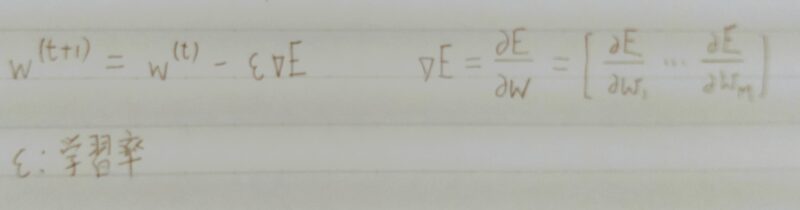 w^{(t+1)} = w^{(t)} - ε∇E  ∇E = ∂E/∂w = [∂E/∂w₁ ⋯ ∂E/∂w_M]
ε: 学習率